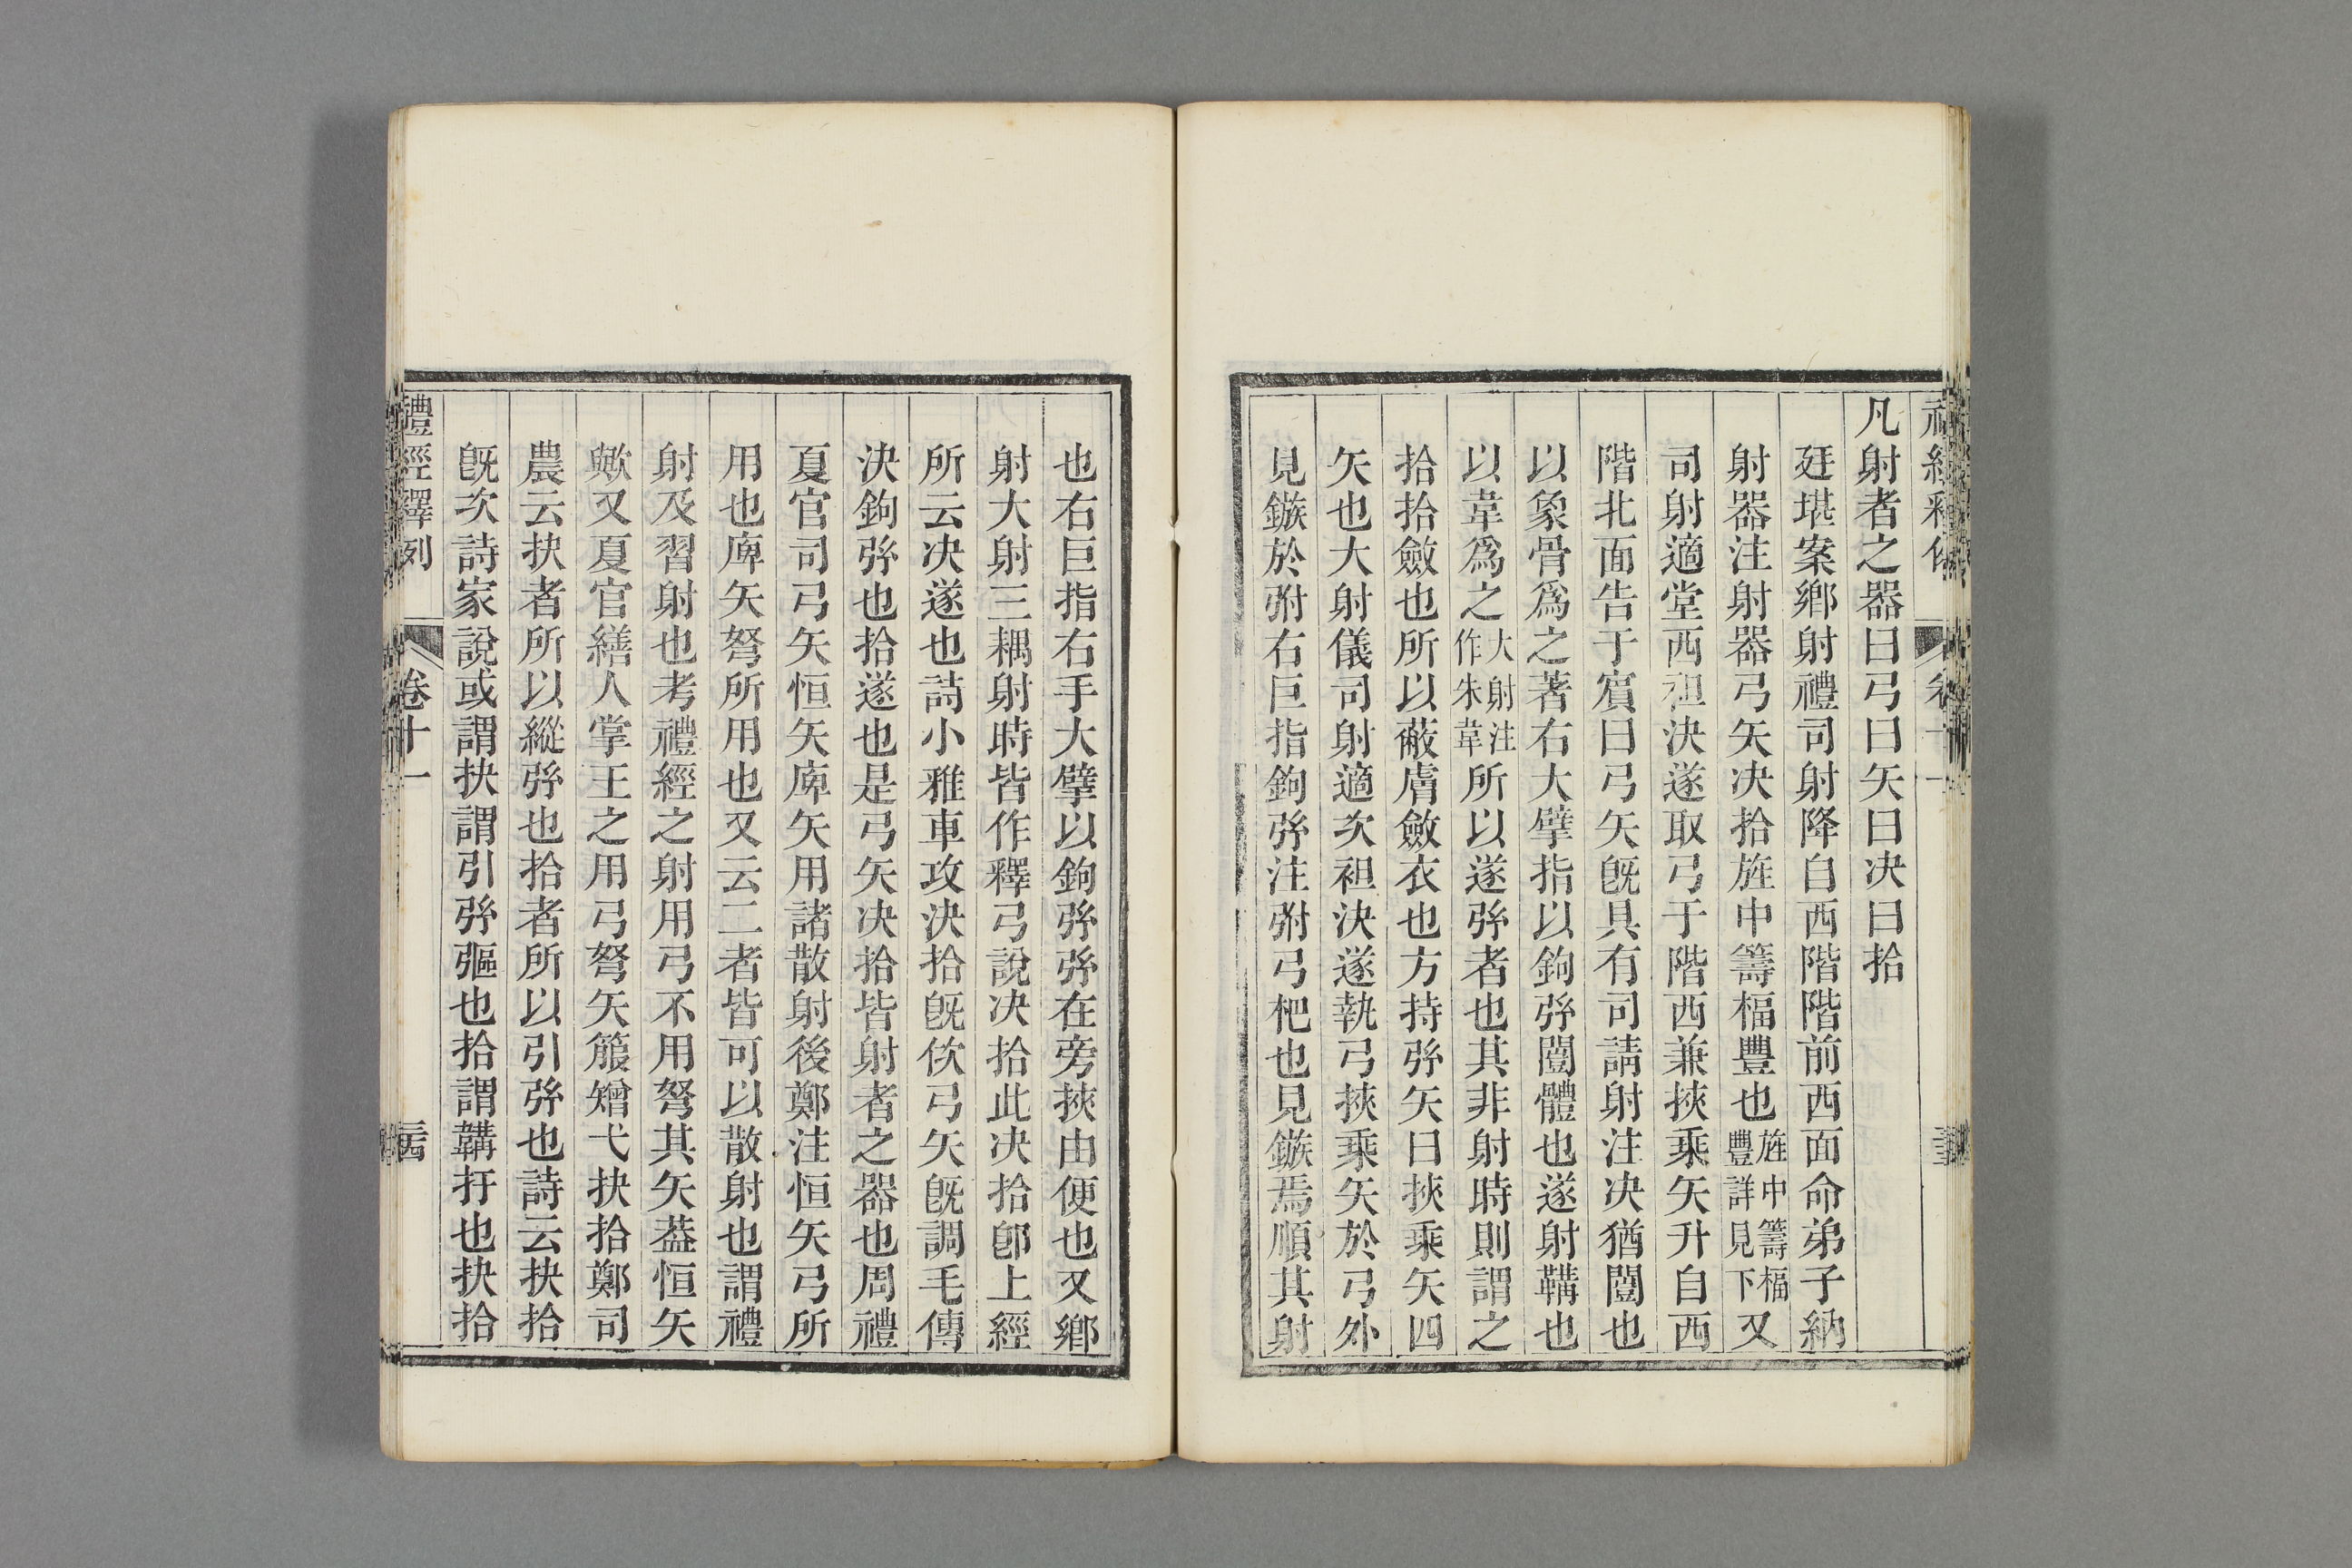 凡射者之器曰弓曰矢曰决曰拾
廷堪案鄉射禮司射降自西階階前西面命弟子納
射器注射器弓矢决拾旌中籌楅豐也旌中籌楅豐詳見下又
司射適堂西袒決遂取弓于階西兼挾乘矢升自西
階北面告于賔曰弓矢旣具有司請射注决猶闓也
以象骨爲之著右大擘指以鉤弦闓體也遂射韝也
以韋爲之大射注作朱韋所以遂弦者也其非射時則謂之
拾拾斂也所以蔽膚斂衣也方持弦矢曰挾乘矢四
矢也大射儀司射適次袒決遂執弓挾乘矢於弓外
見鏃於弣右巨指鉤弦注弣弓杷也見鏃焉順其射
也右巨指右手大擘以鉤弦弦在旁挾由便也又鄉
射大射三耦射時皆作釋弓說决拾此决拾卽上經
所云决遂也詩小雅車攻決拾旣佽弓矢旣調毛傳
決鉤弦也拾遂也是弓矢决拾皆射者之器也周禮
夏官司弓矢恒矢庳矢用諸散射後鄭注恒矢弓所
用也庳矢弩所用也又云二者皆可以散射也謂禮
射及習射也考禮經之射用弓不用弩其矢葢恒矢
歟又夏官繕人掌王之用弓弩矢箙矰弋抉拾鄭司
農云抉者所以縱弦也拾者所以引弦也詩云抉拾
旣次詩家說或謂抉謂引弦彄也拾謂韝扞也抉拾
禮經釋例
卷十一